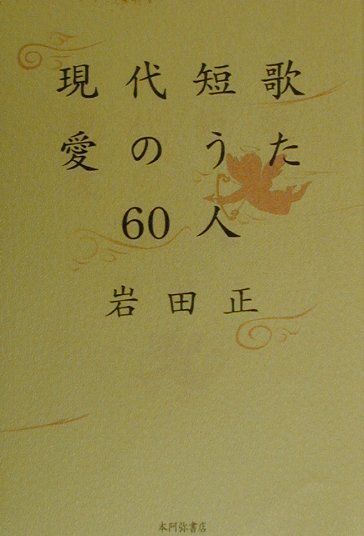 現代短歌
愛のうた
60人
岩田正
本阿弥書店